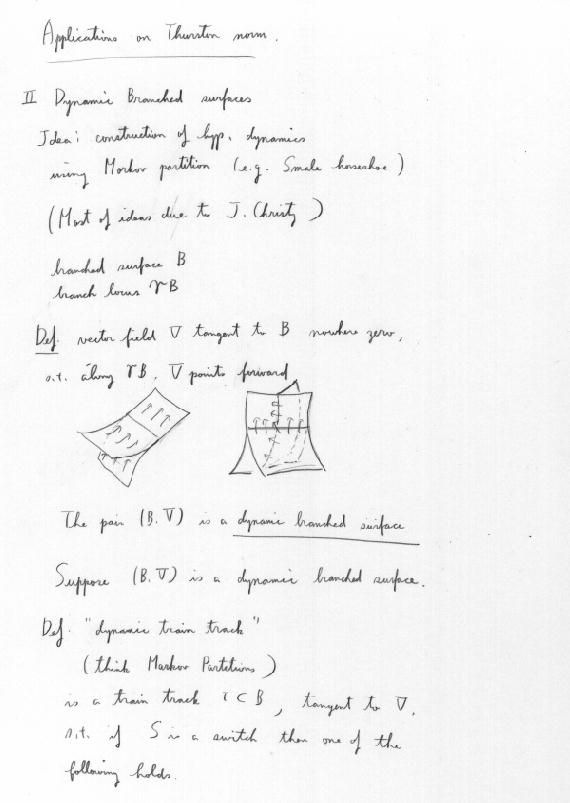 Applications on Thurston norm.
II Dynamic Branched surfaces
Idea: construction of hyp. dynamics
using Markov partition (e.g. Smale horseshoe)
(Most of ideas due to J. Christy)
branched surface B
branch locus ϒB
Def. vector field V tangent to B nowhere zero,
s.t. along ϒB, V points forward
The pair (B, V) is a dynamic branched surface
Suppose (B, V) is a dynamic branched surface.
Def. "dynamic train track"
(think Markov Partitions)
is a train track τ ⊂ B, tangent to V,
s.t. if S is a switch then one of the
following holds.